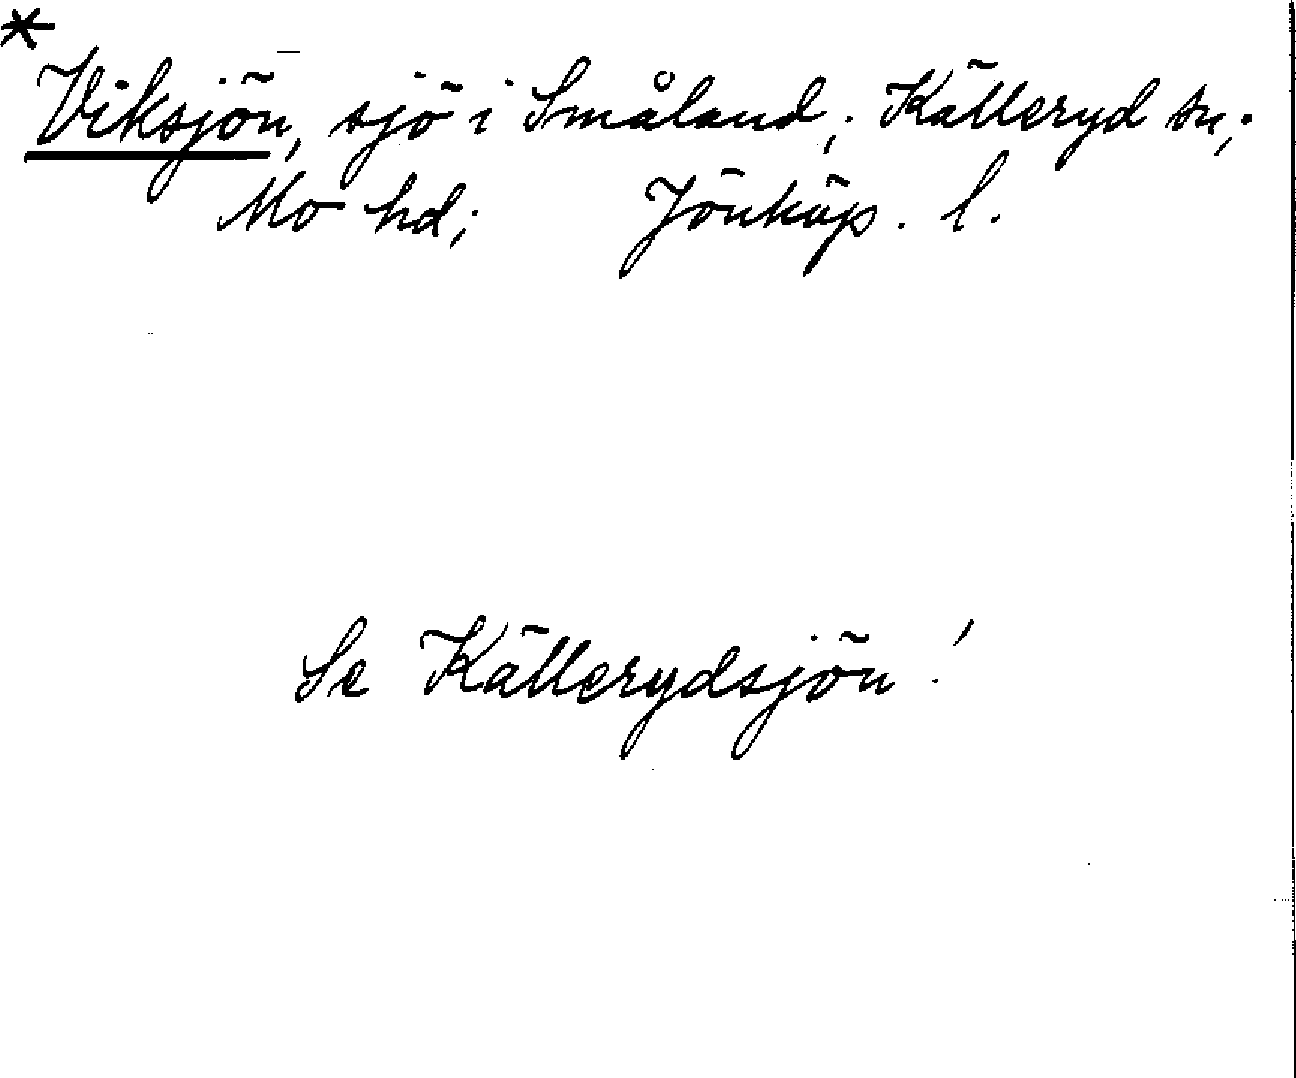 * Viksjön, sjö i Småland; Källeryd sn;
Mo hd; Jönköp. l.
Se Källerydsjön!